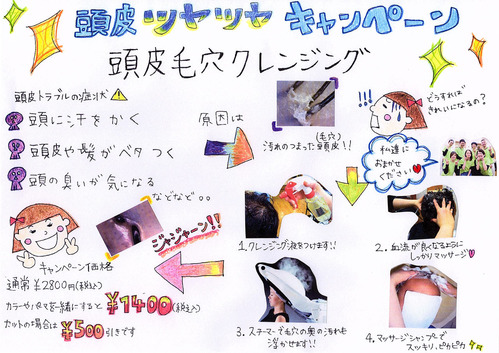 頭皮ツヤツヤキャンペーン
頭皮毛穴クレンジング
頭皮トラブルの症状
頭に汗をかく
頭皮や髪がベタつく
頭の臭いが気になる
などなど。。
原因は
(毛穴)
汚れのつまった頭皮!!
!!!
どうすれば
きれいになるの?
私達に
おまかせ
ください
1.クレンジング液をつけます!!
2.血流が良くなるように
しっかりマッサージ
3.スチーマーで毛穴の奥の汚れも
浮かせます!!
4.マッサージシャンプーで
スッキリ、ピカピカ
ジャジャーン!!
キャンペーン価格
通常¥2800円(税込)
カラーやパーマと一緒にすると¥1400(税込)
カットの場合は¥500引きです